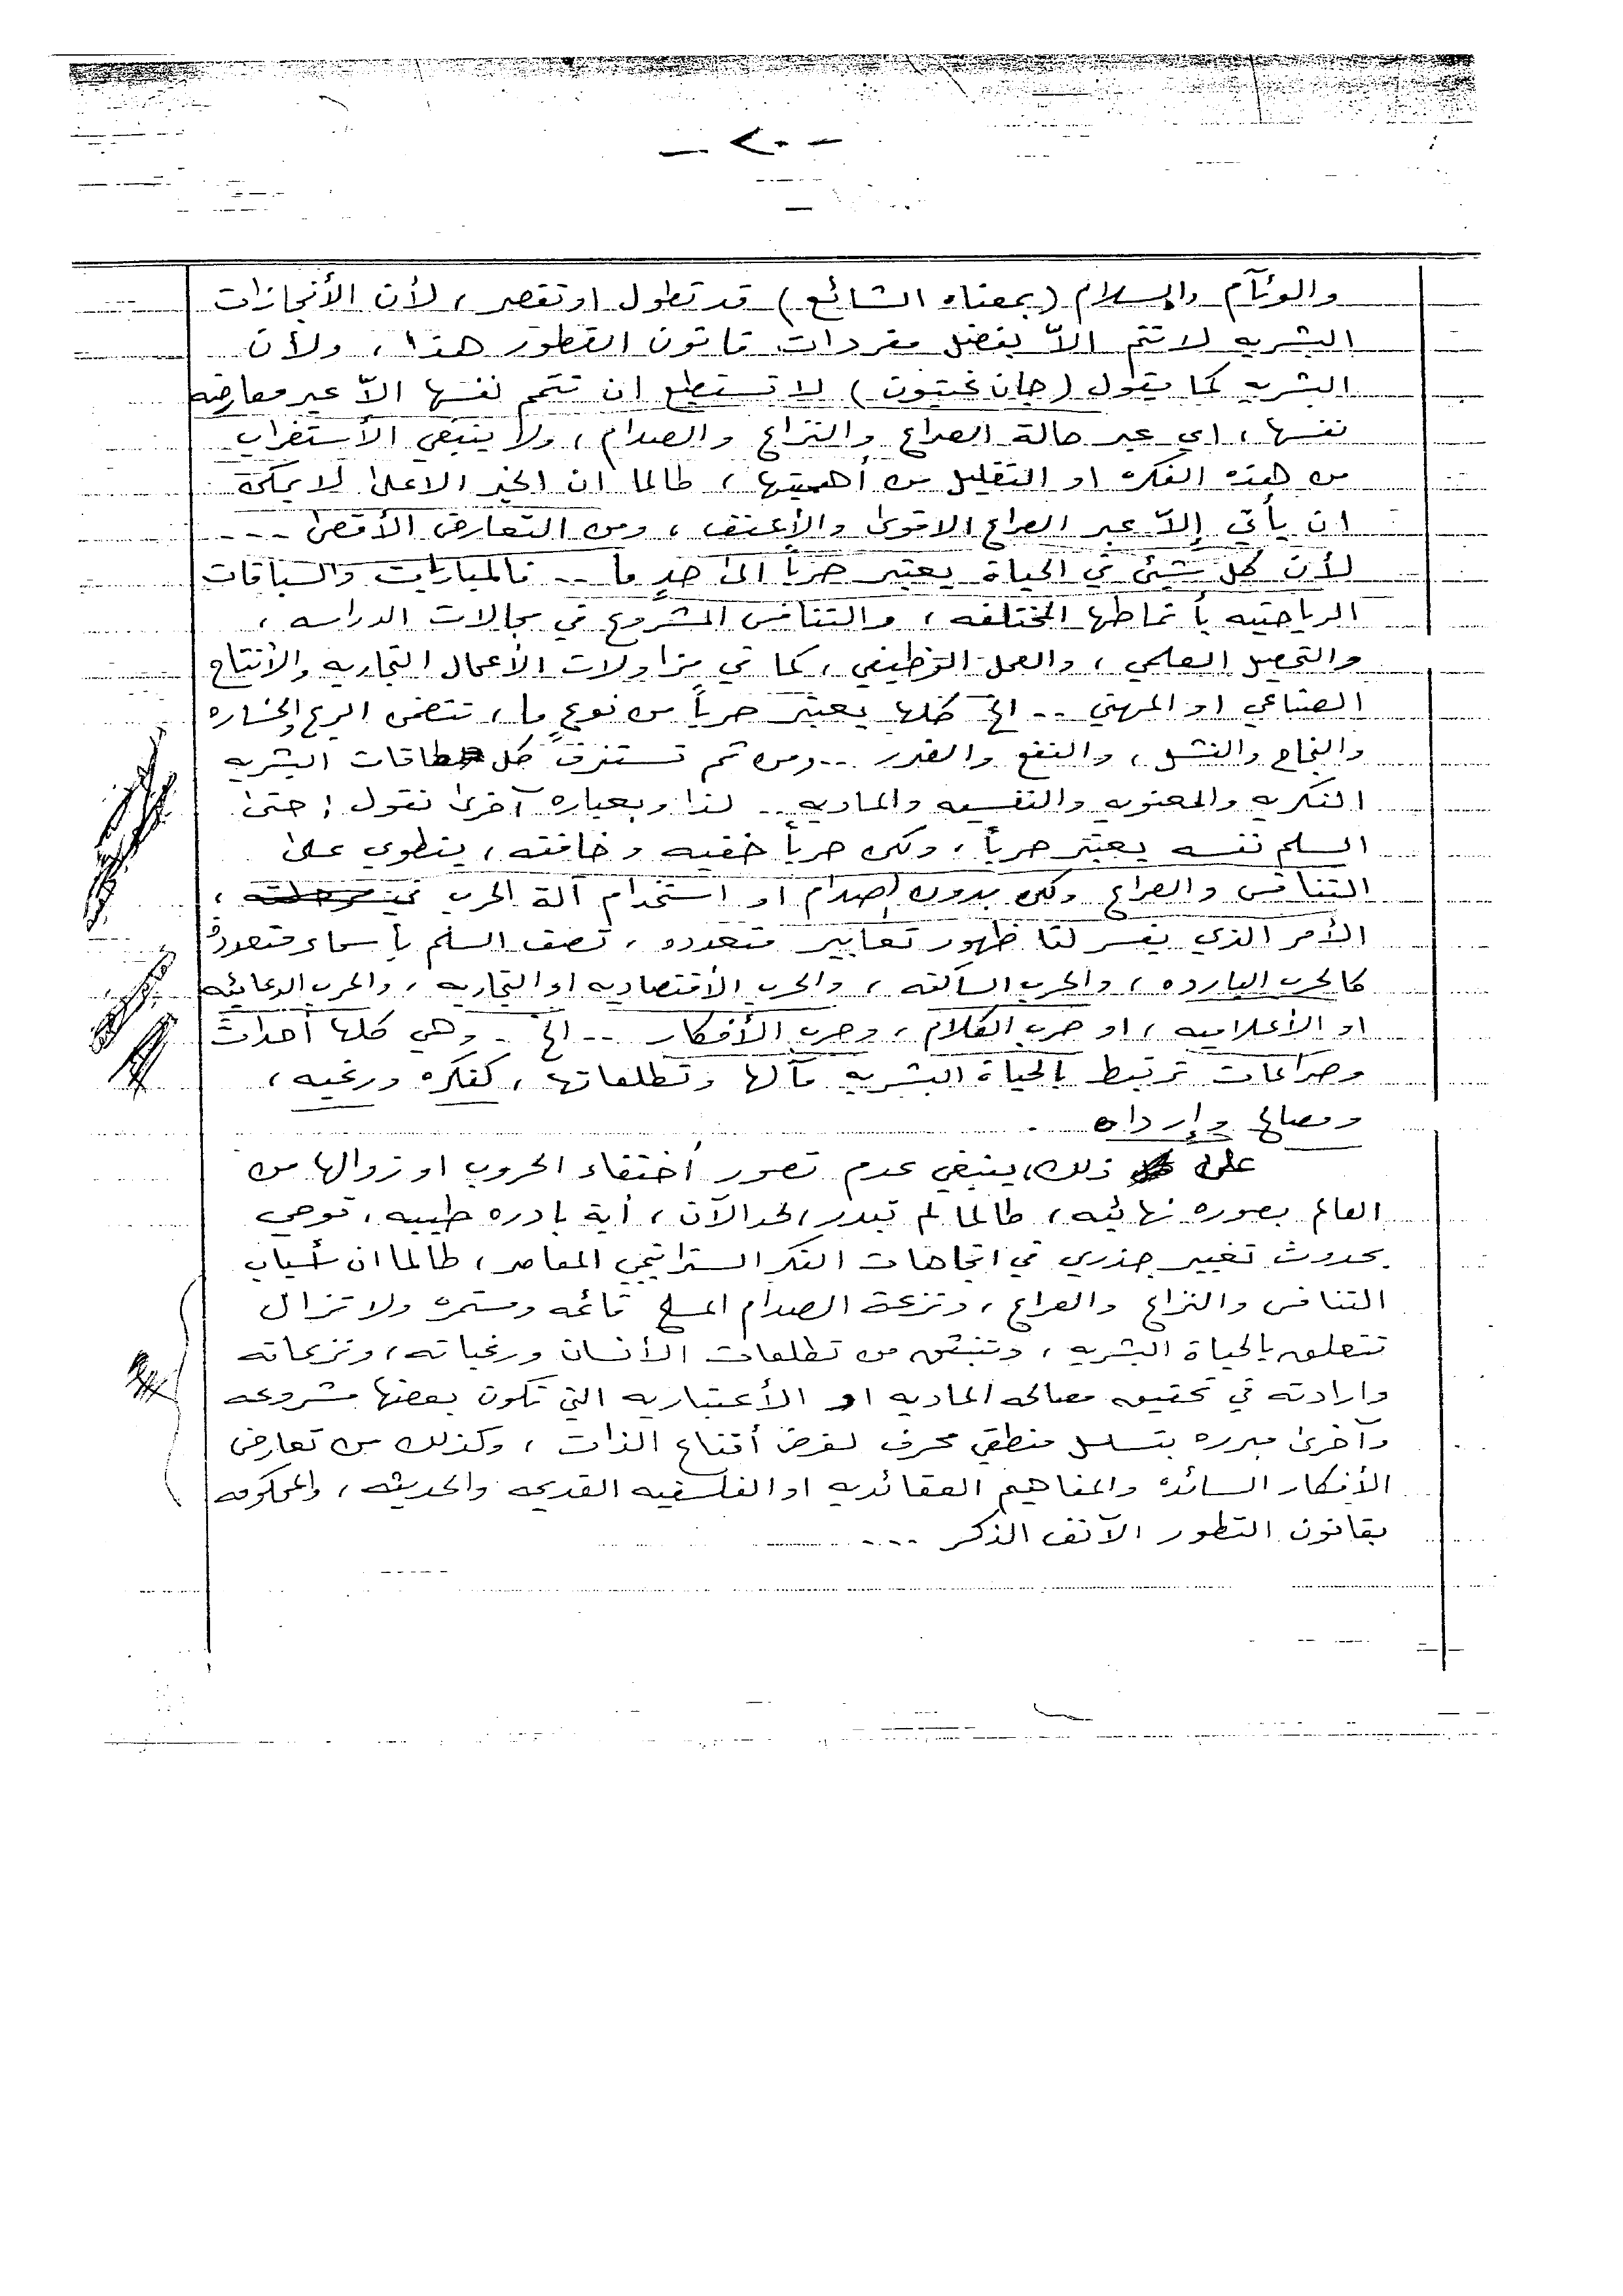 - ٢٠ -
والوئآم والسلام (بمعناه الشائع) قد تطول او تقصر ، لأن الأنجازات
البشريه لا تتم الاّ بفضل مفردات قانون التطور هذا ، ولأن
البشريه كما يقول (جان غيتون) لا تستطيع ان تتمم نفسها الاّ عبر معارضه
نفسها ، اي عبر حالة الصراع والنزاع والصدام ، ولا ينبغي الأستغراب
من هذه الفكره او التقليل من أهميتها ، طالما ان الخير الاعلى لا يمكنه
ان يأتي إلاّ عبر الصراع الاقوى والأعنف ، ومن التعارض الأقصى ----
لأن كل شيئ في الحياة يعتبر حرباً الى حدٍ ما -- فالمباريات والسباقات
الرياضيه بأنماطها المختلفه ، والتنافس المشروع في مجالات الدراسه ،
والتحصيل العلمي ، والعمل الوظيفي ، كما في مزاولات الأعمال التجاريه والأنتاج
الصناعي او المهني -- الخ كلها يعتبر حرباً من نوعٍ ما ، تتضمن الربح والخساره
والنجاح والفشل ، والنفع والضرر -- ومن ثم تستنزف كل طاقات البشريه
الفكريه والمعنويه والنفسيه والماديه -- لذا وبعباره آخرى نقول : حتى
السلم نفسه يعتبر حرباً ، ولكن حرباً خفيه وخافته ، ينطوي على
التنافس والصراع ولكن بدون صدام او استخدام آلة الحرب في مرحلته ،
الأمر الذي يفسر لنا ظهور تعابير متعدده ، تصف السلم بأسماء متعددة
كالحرب البارده ، والحرب الساكنه ، والحرب الأقتصاديه او التجاريه ، والحرب الدعائيه
او الأعلاميه ، او حرب الكلام ، وحرب الأفكار -- الخ - وهي كلها أحداث
وصراعات ترتبط بالحياة البشريه مآلها وتطلعاتها ، كفكره ورغبه ،
ومصالح وإرداه .
على ذلك ، ينبغي عدم تصور أختفاء الحروب او زوالها من
العالم بصوره نهائيه ، طالما لم تبدر لحد الآن ، أية بادره طيبه ، توحي
بحدوث تغيير جذري في اتجاهات الفكر الستراتيجي المعاصر ، طالما ان أسباب
التنافس والنزاع والصراع ، ونزعة الصدام المسلح قائمه ومستمره ولا تزال
تتعلق بالحياة البشريه ، وتنبثق من تطلعات الأنسان ورغباته ، ونزعاته
وارادته في تحقيق مصالحه الماديه او الأعتباريه التي تكون بعضها مشروعه
وآخرى مبرره بتسلسل منطقي محرف لغرض أقناع الذات ، وكذلك من تعارض
الأفكار السائده والمفاهيم العقائديه او الفلسفيه القديمه والحديثه ، والمحكومه
بقانون التطور الآنف الذكر ----